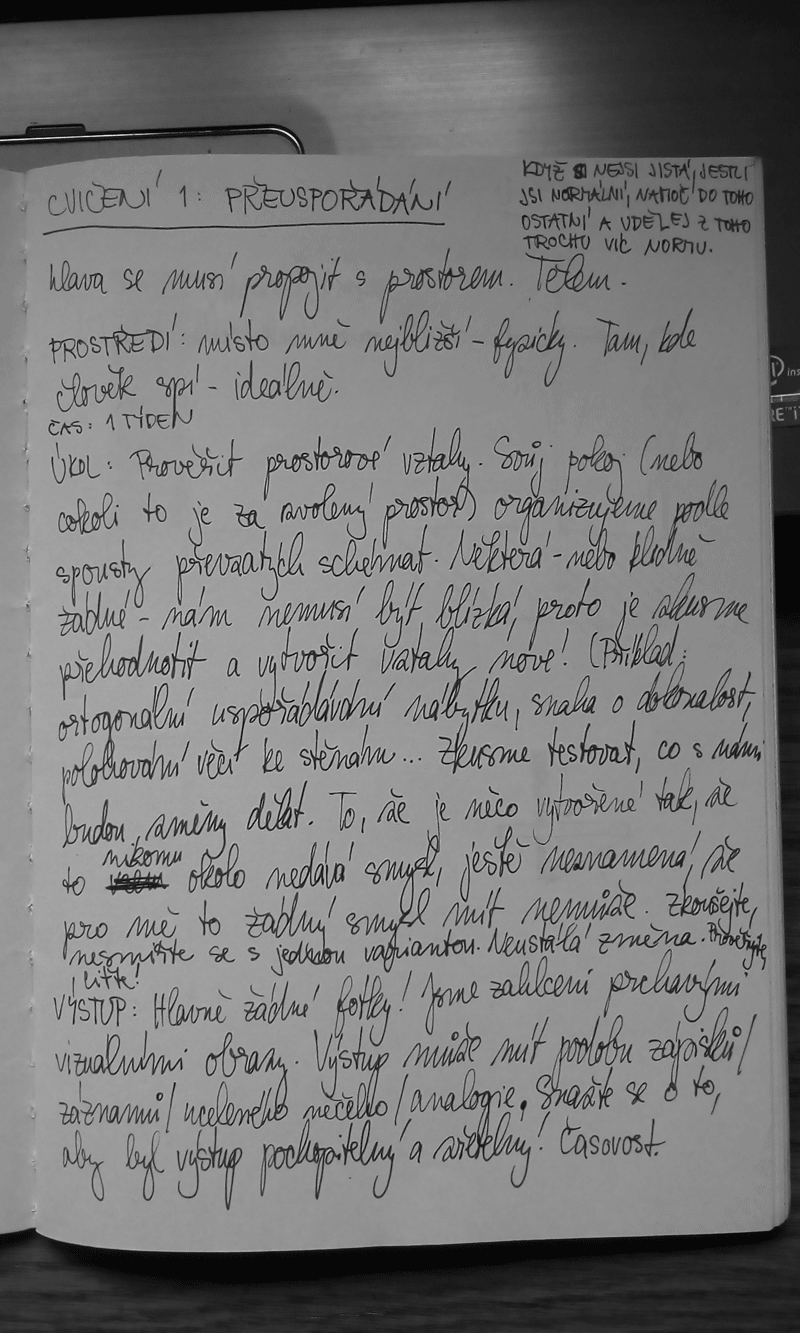 CVIČENÍ 1: PŘEUSPOŘÁDÁNÍ
KDYŽ SI NEJSI JISTÁ, JESTLI
JSI NORMÁLNÍ, NAMOČ DO TOHO
OSTATNÍ A UDĚLEJ Z TOHO
TROCHU VÍC NORMU.
hlava se musí propojit s prostorem. Tělem.
PROSTŘEDÍ: místo mně nejbližší - fyzicky. Tam, kde
člověk spí - ideálně.
ČAS: 1 TÝDEN
ÚKOL: Prověřit prostorové vztahy. Svůj pokoj (nebo
cokoli to je za zvolený prostor) organizujeme podle
spousty převzatých schémat. Některá - nebo klidně
žádné - nám nemusí být blízká, proto je zkusme
přehodnotit a vytvořit vztahy nové! (Příklad:
ortogonální uspořádávání nábytku, snaha o dokonalost,
polohování věcí ke stěnám... Zkusme testovat, co s námi
budou změny dělat. To, že je něco vytvořené tak, že
to nikomu okolo nedává smysl, ještě neznamená, že
pro mě to žádný smysl mít nemůže. Zkoušejte,
nesmiřte se s jednou variantou. Neustálá změna. Prověřujte,
ciťte!
VÝSTUP: Hlavně žádné fotky! Jsme zahlceni prchavými
vizuálními obrazy. Výstup může mít podobu zápisků/
záznamů/ uceleného něčeho/ analogie. Snažte se o to,
aby byl výstup pochopitelný a sdělitelný! Časovost.
ins